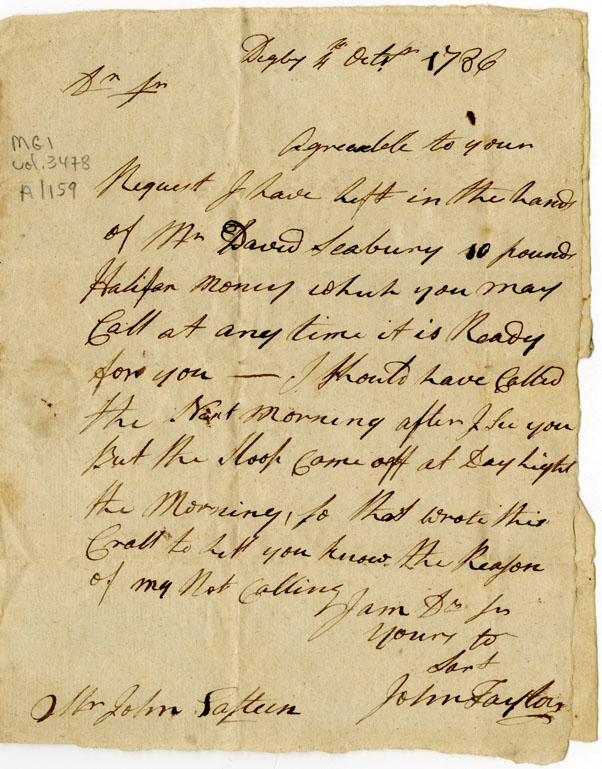 Digby 4th Octbr 1786
Dr Sr
MG1
vol. 3478
A/159
Agreable to your
Request I have Left in the hands
of Mr David Seabury 10 pounds
Halifax money which you may
Call at any time it is Ready
for you — I Should have Called
the Next Morning after I See you
But the Sloop Came off at Day Light
the Morning, so that wrote this
to Let you know the Reason
of my Not Calling
I am Dr Sr
Yours to
Sart
John Taylor
Mr John